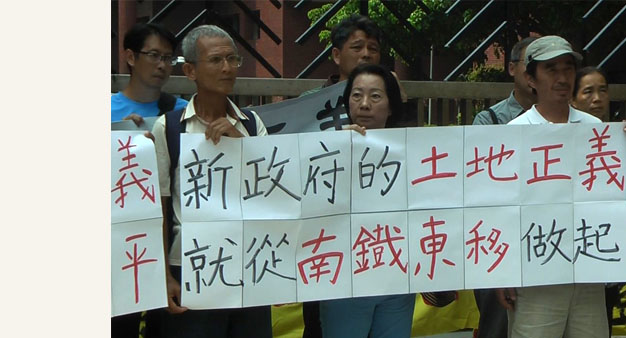 義 新政府的土地正義
平 就從南鐵東移做起